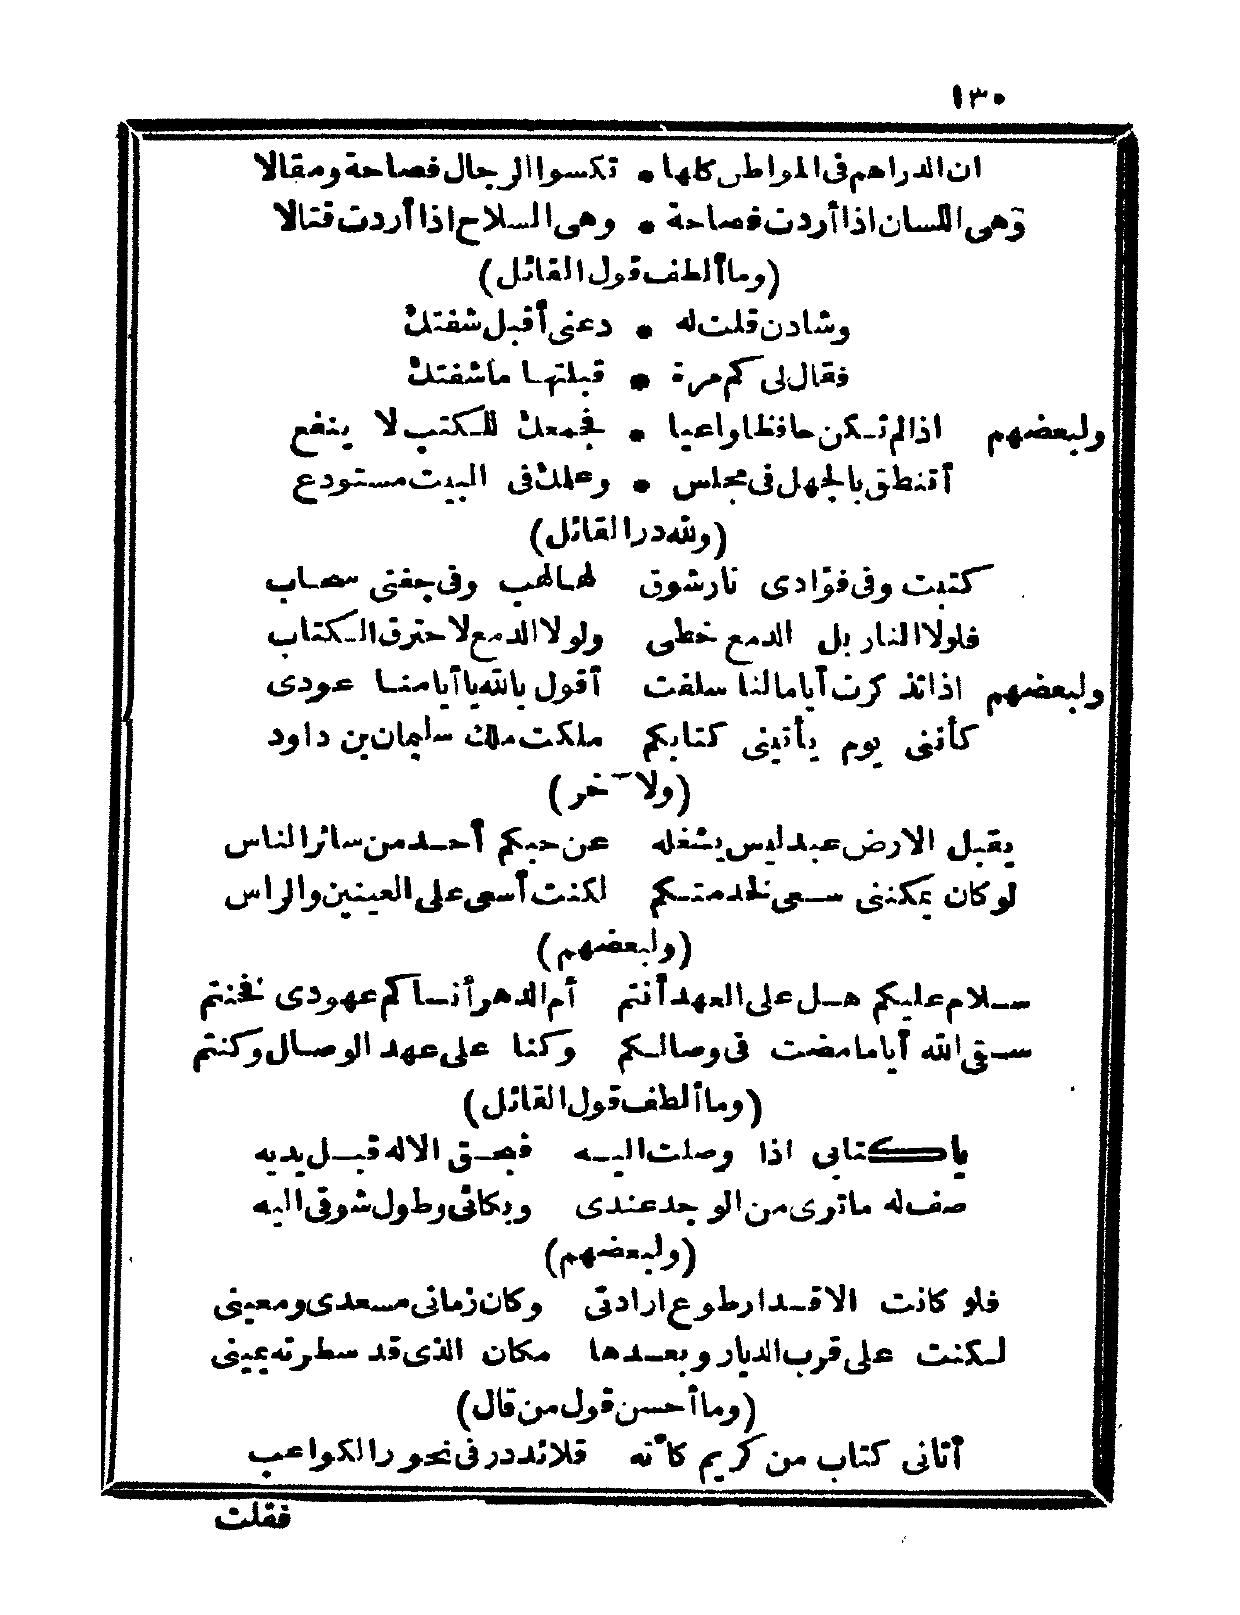 ١٣٠
ان الدراهم فى المواطن كلها • تكسوا الرجال فصاحة ومقالا
وهى اللسان اذا أردت فصاحة • وهى السلاح اذا أردت قتالا
(وما ألطف قول القائل)
وشادن قلت له • دعنى أقبل شفتك
فقال لى كم مرة • قبلتها ما شفتك
ولبعضهم اذا لم تكن حافظا واعيا • فجمعك للكتب لا ينفع
أتنطق بالجهل فى مجلس • وعلمك فى البيت مستودع
(ولله در القائل)
كتبت وفى فؤادى نار شوق لها لهب وفى جفنى سحاب
فلولا النار بل الدمع خطى ولولا الدمع لاحترق الكتاب
ولبعضهم اذا تذكرت أياما لنا سلفت أقول بالله يا أيامنا عودى
كأننى يوم يأتينى كتابكم ملكت ملك سليمان بن داود
(ولآخر)
يقبل الارض عبد ليس يشغله عن حبكم أحد من سائر الناس
لو كان يمكننى سعى لخدمتكم لكنت أسعى على العينين والراس
(ولبعضهم)
سلام عليكم هل على العهد أنتم أم الدهر أنساكم عهودى فخنتم
سقى الله أياما مضت فى وصالكم وكنا على عهد الوصال وكنتم
(وما ألطف قول القائل)
يا كتابى اذا وصلت اليه فبحق الاله قبل يديه
صف له ما ترى من الوجد عندى وبكائى وطول شوقى اليه
(ولبعضهم)
فلو كانت الاقدار طوع ارادتى وكان زمانى مسعدى ومعينى
لكنت على قرب الديار وبعدها مكان الذى قد سطرته يمينى
(وما أحسن قول من قال)
أتانى كتاب من كريم كأنه قلائد در فى نحور الكواعب
فقلت